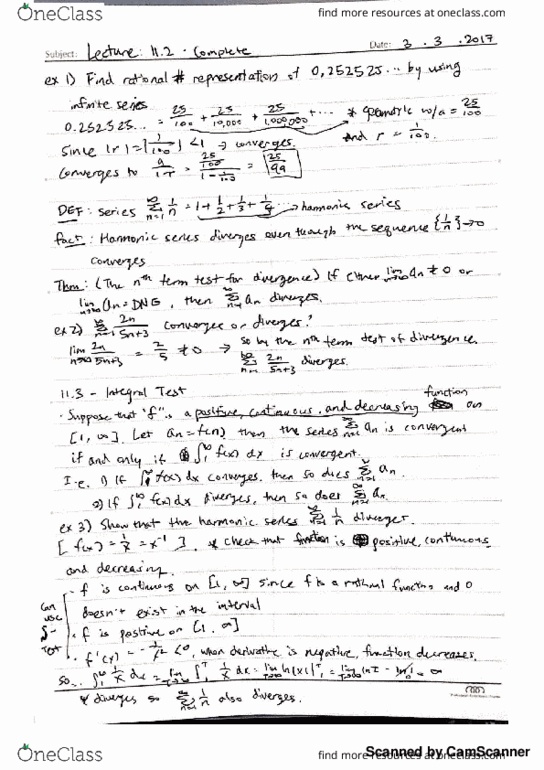 OneClass
find more resources at oneclass.com
Subject: Lecture: 11.2 - Complete Date: 3 . 3 . 2017
ex 1) Find rational # representation of 0,252525... by using
infinite series
0.252525... = 25/100 + 25/10,000 + 25/1,000,000 + ... * geometric w/a = 25/100
and r = 1/100.
Since |r| = |1/100| < 1 → converges.
Converges to a/1-r = 25/100 / 1 - 1/100 = 25/99
DEF: series ∞Σn=1 1/n = 1 + 1/2 + 1/3 + 1/4 → harmonic series
fact: Harmonic series diverges even though the sequence {1/n} → 0
converges
Thm: (The nth term test for divergence) If either lim n→∞ an ≠ 0 or
lim n→∞ an = DNE, then ∞Σn=1 an diverges.
ex 2) ∞Σn=1 2n/5n+3 converges or diverges?
lim n→∞ 2n/5n+3 = 2/5 ≠ 0 → so by the nth term test of divergence
∞Σn=1 2n/5n+3 diverges.
11.3 - Integral Test
· Suppose that "f" is a positive, continuous, and decreasing function on
[1, ∞]. Let an = f(n) then the series ∞Σn=1 an is convergent
if and only if ∫1∞ f(x) dx is convergent.
I.e. 1) If ∫1∞ f(x) dx converges, then so does ∞Σn=1 an.
2) If ∫1∞ f(x) dx diverges, then so does ∞Σ an.
ex 3) Show that the harmonic series ∞Σn=1 1/n diverges.
[ f(x) = 1/x = x⁻¹ ]. * check that function is positive, continuous
and decreasing.
· f is continuous on [1, ∞] since f is a rational function and 0
doesn't exist in the interval
· f is positive on [1, ∞]
· f'(x) = - 1/x² < 0, when derivative is negative, function decreases.
Can use ∫- Test
so.. ∫1∞ 1/x dx = lim T→∞ ∫1T 1/x dx = lim T→∞ ln|x| |T1 = lim T→∞ ln T - ln 1 = ∞
* diverges so ∞Σn=1 1/n also diverges.
Scanned by CamScanner
OneClass
find more resources at oneclass.com